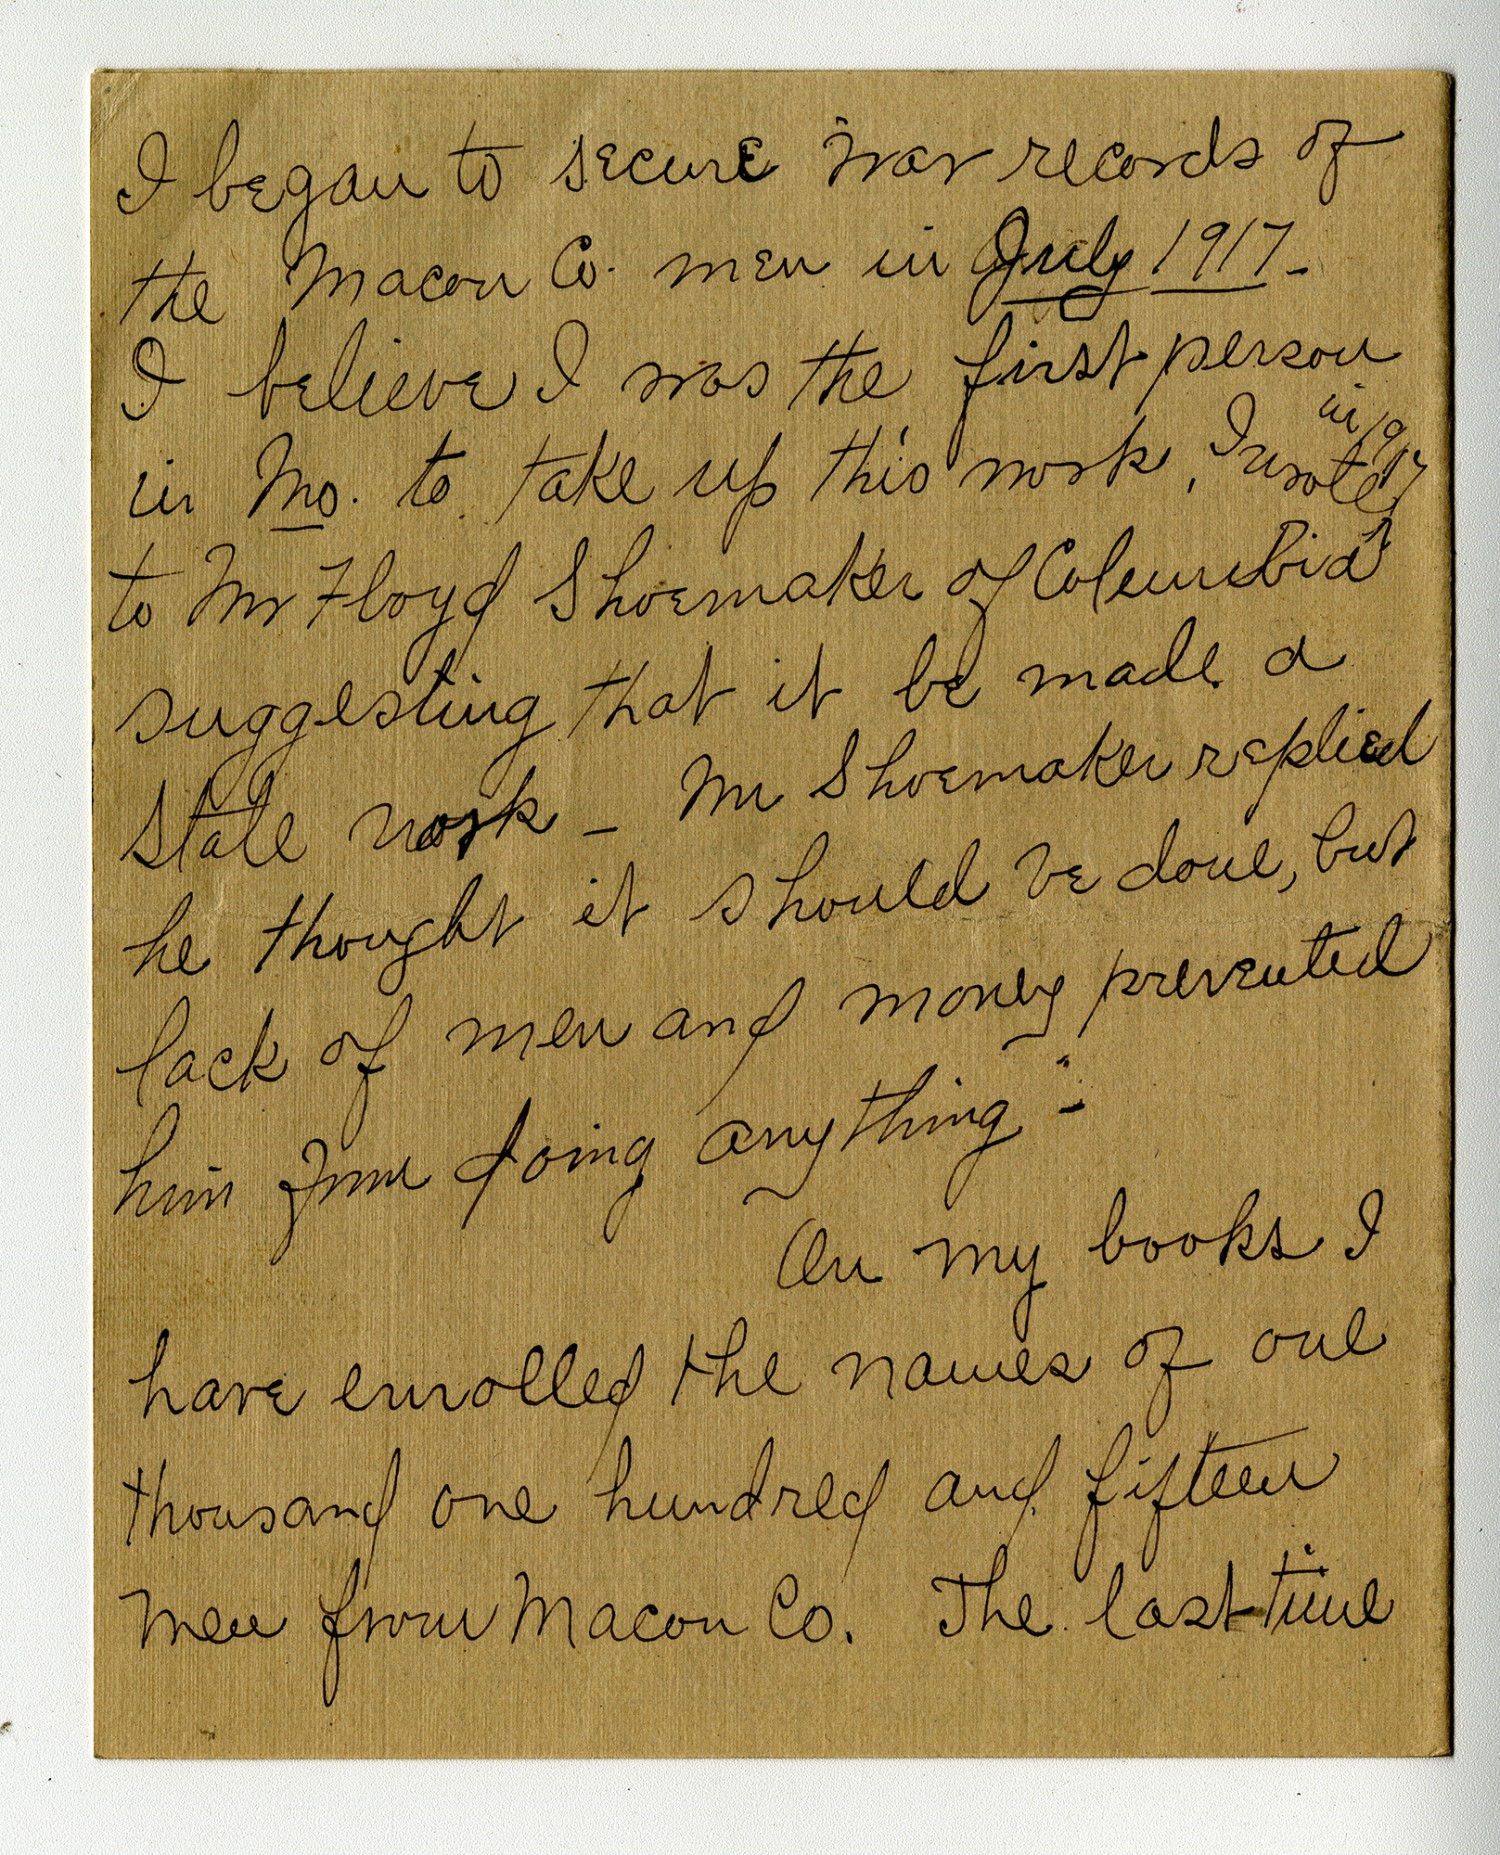 I began to secure war records of
the Macon Co. men in July 1917-
I believe I was the first person
in Mo. to take up this work, I wrote in 1917
to Mr Floyd Shoemaker of Columbia,
suggesting that it be made a
State work - Mr Shoemaker replied
he thought it should be done, but
lack of men and money prevented
him from doing anything"-
On my books I
have enrolled the names of one
thousand one hundred and fifteen
men from Macon Co. The last time